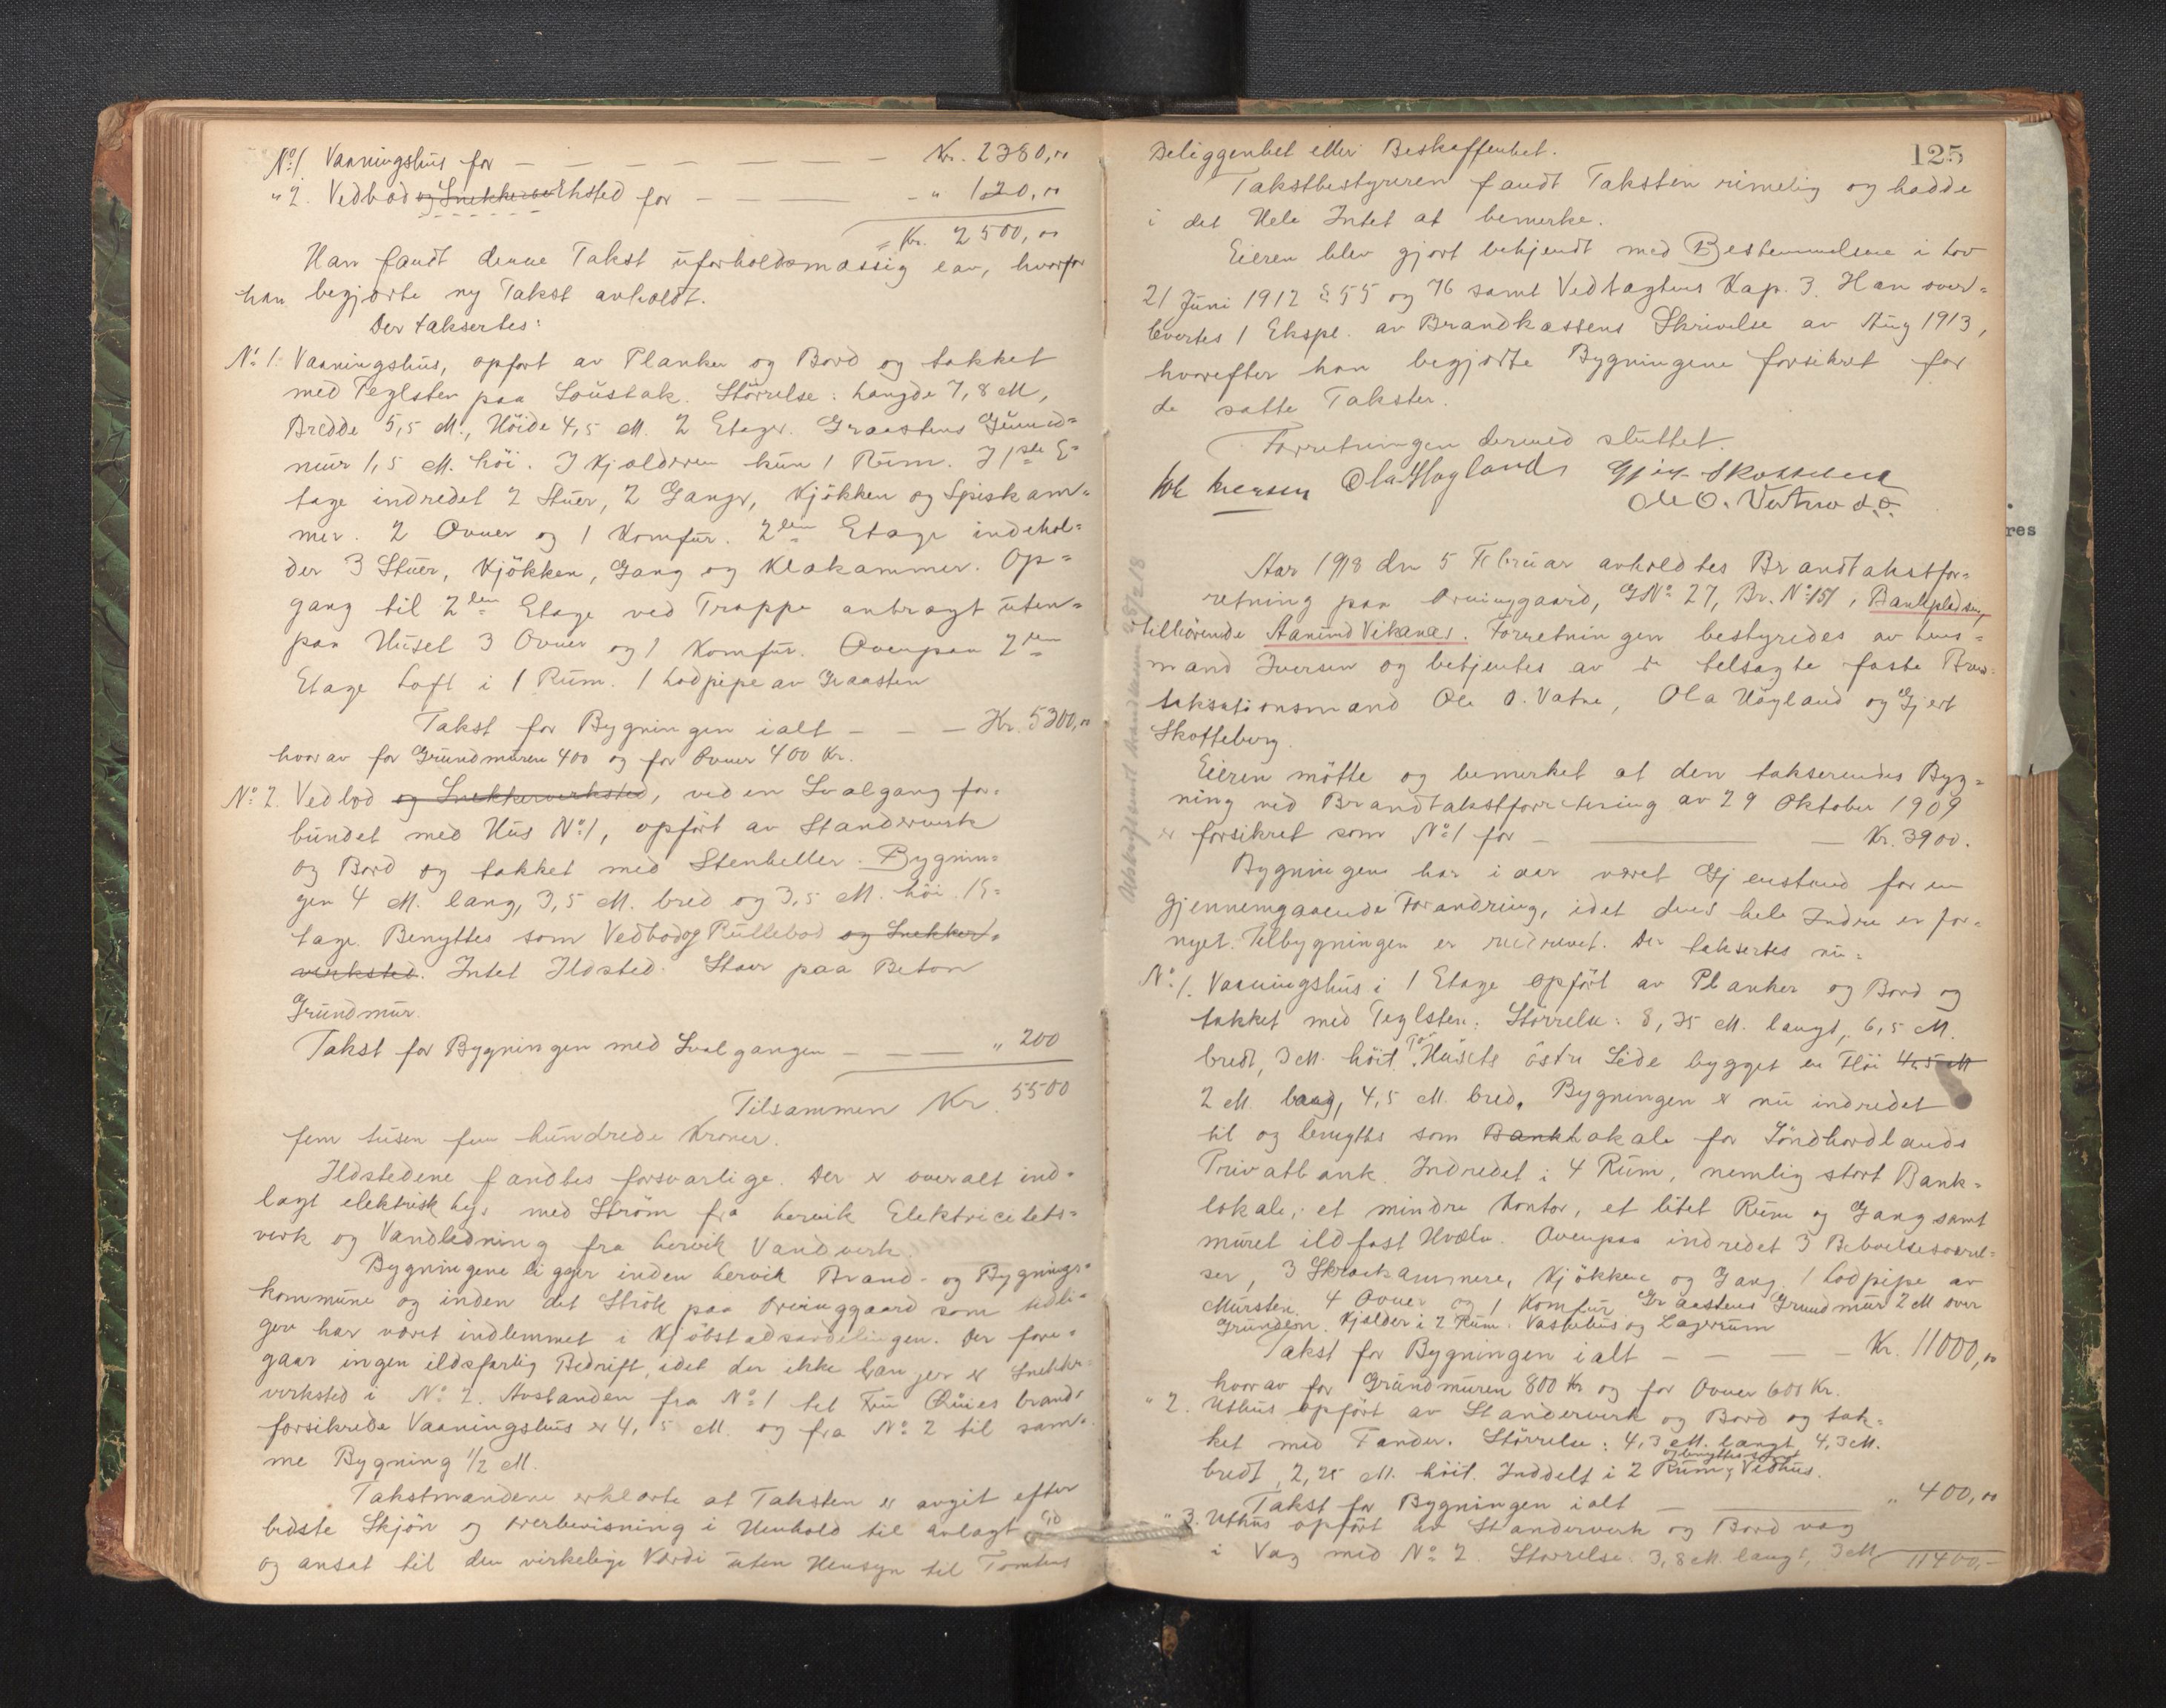 No 1. Vaaningshus for — — — — — — — Kr. 2380,00
" 2. Vedbod og Snekkerverksted for — — — — " 120,00
= Kr. 2500,00
Han fandt denne Takst uforholdsmæssig lav, hvorfor
han begjærte ny Takst avholdt.
Der taksertes:
No 1. Vaaningshus, opført av Planker og Bord og tækket
med Teglsten paa Soustak. Störrelse: Længde 7,8 M,
Bredde 5,5 M., Höide 4,5 M. 2 Etager. Graastens Grund=
mur 1,5 M. höi. I Kjælderen kun 1 Rum. I 1ste E=
tage indredet 2 Stuer, 2 Ganger, Kjökken og Spiskam=
mer. 2 Ovner og 1 Komfur. 2den Etage indehol=
der 3 Stuer, Kjökken, Gang og Klækammer. Op=
gang til 2den Etage ved Trappe anbragt uten=
paa Huset 3 Ovner og 1 Komfur. Ovenpaa 2den
Etage Loft i 1 Rum. 1 Lodpipe av Graasten
Takst for Bygningen ialt — — — Kr. 5300,00
hvorav for Grundmuren 400 og for Ovner 400 Kr.
No 2. Vedbod og Snekkerverksted, ved en Svalgang for=
bundet med Hus No 1, opfört av Standerverk
og Bord og tækket med Stenheller. Bygnin=
gen 4 M. lang, 3,5 M. bred og 3,5 M. höi. 1 E=
tage. Benyttes som Vedbod og Rullebod og Snekker=
verksted. Intet Ildsted. Staar paa Beton
Grundmur.
Takst for Bygningen med Svalgangen — — — " 200
Tilsammen Kr. 5500
fem tusen fem hundrede Kroner.
Ildstedene fandtes forsvarlige. Der er overalt ind=
lagt elektrisk lys med Ström fra Lervik Elektricitets=
verk og Vandledning fra Lervik Vandverk.
Bygningene ligger inden Lervik Brand- og Bygnings=
kommune og inden det Strök paa Orninggaard som tidli=
gere har været indlemmet i Kjöbstadsavdelingen. Der fore=
gaar ingen ildsfarlig Bedrift, idet der ikke længer er Snekker=
verksted i No 2. Avstanden fra No 1 til Fru Öiens brand=
forsikrede Vaaningshus er 4,5 M. og fra No 2 til sam=
me Bygning 1/2 M.
Takstmændene erklærte at Taksten er avgit efter
bedste Skjön og Overbevisning i Henhold til avlagt Ed
og ansat til den virkelige Værdi uten Hensyn til Tomtens
125
Beliggenhet eller Beskaffenhet.
Takstbestyreren fandt Taksten rimelig og hadde
i det Hele Intet at bemerke.
Eieren blev gjort bekjendt med Bestemmelsene i Lov
21 Juni 1912 § 55 og 76 samt Vedtægtens Kap. 3. Han over=
levertes 1 Ekspl. av Brandkassens Skrivelse av Aug 1913,
hvorefter han begjærte Bygningene forsikret for
de satte Takster.
Forretningen dermed sluttet.
Iversen Ola Høgland Gjert Skotteberg
Ole O. Vatne
Aar 1918 den 5 Februar avholdtes Brandtakstfor=
retning paa Orninggaard, GNo 27, Br. No 151, Bankpladsen,
tilhörende Aanund Vikanes. Forretningen bestyredes av Lens=
mand Iversen og betjentes av de edsagte faste Bran
taksationsmænd Ole O. Vatne, Ola Høgland og Gjert
Skotteberg.
Eieren mötte og bemerket at den takserendes Byg=
ning ved Brandtakstforretning av 29 Oktober 1909
er forsikret som No 1 for — — — Kr. 3900.
Bygningen har i aar været Gjenstand for en
gjennemgaaende Forandring, idet dens hele Indre er for=
nyet. Tilbygningen er nedrevet. Der taksertes nu:
No 1. Vaaningshus i 1 Etage opfört av Planker og Bord og
tækket med Teglsten. Störrelse: 8,75 M. langt, 6,5 M.
bredt, 3 M. höit. Paa Husets östre Side bygget en Flöi 4,5 M
2 M. lang, 4,5 M. bred. Bygningen er nu indredet
til og benyttes som Banklokale for Söndhordlands
Privatbank. Indredet i 4 Rum, nemlig stort Bank=
lokale, et mindre Kontor, et litet Rum og Gang samt
muret ildfast Hvælv. Ovenpaa indredet 3 Beboelsesværel=
ser, 3 Skraakammere, Kjökken og Gang. 1 Lodpipe av
Mursten. 4 Ovner og 1 Komfur. Graastens Grundmur 2 M over
Grunden. Kjelder i 2 Rum. Vaskehus og Lagerrum
Takst for Bygningen ialt — — — Kr. 11000,00
hvorav for Grundmuren 800 Kr og for Ovner 600 Kr.
" 2. Uthus opfört av Standerverk og Bord og tæk=
ket med Tander. Störrelse: 4,3 M. langt, 4,3 M.
bredt, 2,25 M. höit. Inddelt i 2 Rum og benyttes som Vedhus.
Takst for Bygningen ialt — — " 400,00
" 3. Uthus opfört av Standerverk og Bord væg
i Væg med No 2. Störrelse. 3,8 M. langt, 3 M
11400,-
res